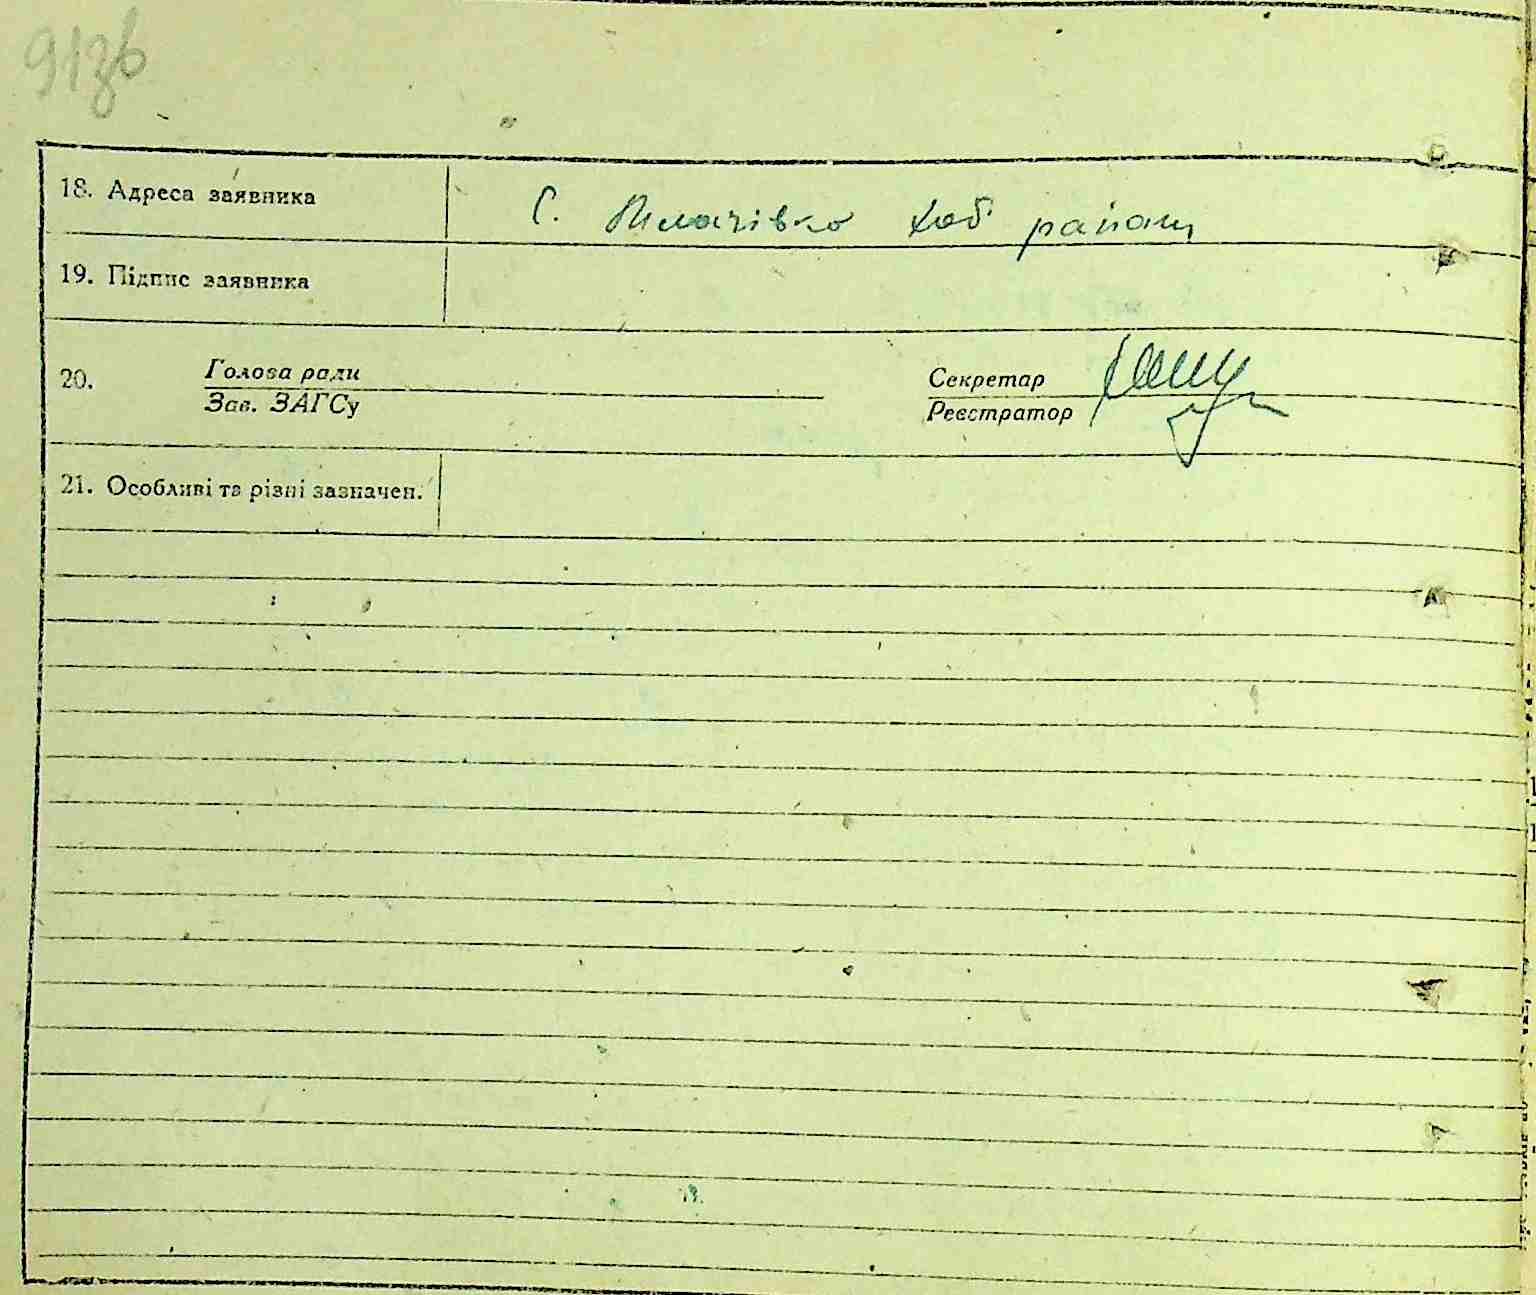 91зв
18. Адреса заявника С. Пилачівко Хаб району
19. Підпис заявника
20. Голова ради Секретар
Зав. ЗАГСу Реєстратор
21. Особливі та різні зазначен.